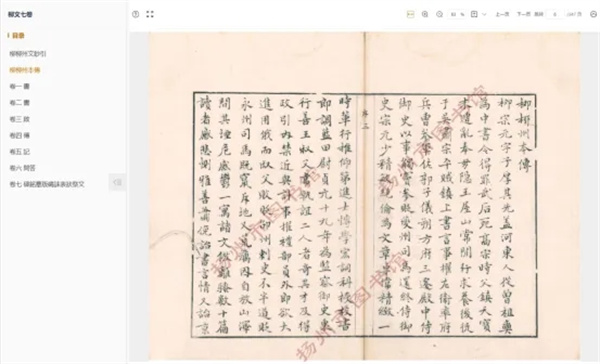 柳文七卷
目录
柳柳州文鈔引
柳柳州本傳
卷一 書
卷二 書
卷三 啟
卷四 傳
卷五 記
卷六 問答
上一页 下一页 跳转 6
柳柳州本傳
柳宗元字子厚其先蓋河東人從曾祖奭
為中書令得罪武后死高宗時父鎮天寶
末遇亂奉母隱王屋山常間行求養後徙
于吳肅宗平賊鎮上書言事擢左衛率府
兵曹參軍佐郭子儀朔方府三遷殿中侍
御史以事觸竇參貶夔州司馬還終侍御
史宗元少精敏絕倫為文章卓偉精緻一
序三
時輩行推仰第進士博學宏詞科授校書
郎調藍田尉貞元十九年為監察御史裏
行善王叔文韋執誼二人者奇其才及得
政引內禁近與計事擢禮部員外郎欲大
進用俄而叔文敗貶邵州刺史不半道貶
永州司馬既竄斥地又荒癘因自放山澤
間其湮厄感鬱一寓諸文倣離騷數十篇
讀者咸悲惻雅善蕭俛詒書言情又詒京
扬州市图书馆
扬州市图书馆